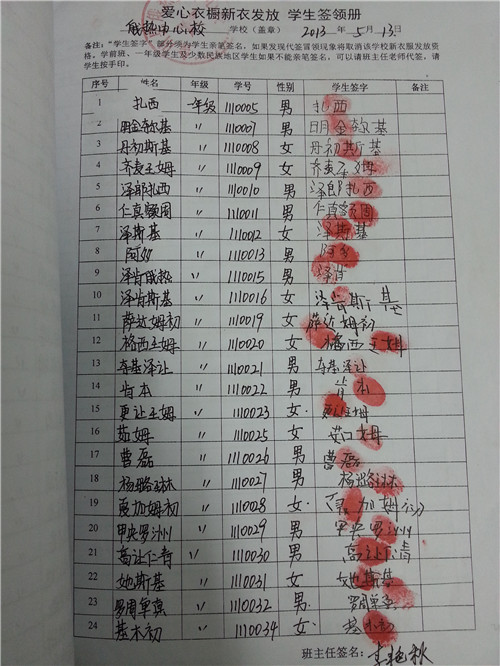 爱心衣橱新衣发放 学生签领册
俄热中心校 学校（盖章） 2013年5月13日
备注："学生签字"部分须为学生亲笔签名，如果发现代签冒领现象将取消该学校新衣服发放资
格，学前班、一年级学生及少数民族地区学生如果不能亲笔签名，可以请班主任老师代签，请
学生按手印。
序号 姓名 年级 学号 性别 学生签字 备注
1 扎西 一年级 1110005 男 扎西
2 明金 基 〃 1110007 男 明金 基
3 丹初斯基 〃 1110008 女 丹初斯基
4 齐麦王姆 〃 1110009 女 齐麦王姆
5 泽郎扎西 〃 1110010 男 泽郎扎西
6 仁真 周 〃 1110011 男 仁真 周
7 泽斯基 〃 1110012 女 泽斯基
8 阿多 〃 1110013 男 阿多
9 泽肯俄热 〃 1110015 男 泽肯
10 泽肯斯基 〃 1110016 女 泽肯斯基
11 萨达姆初 〃 1110019 女 萨达姆初
12 格西王姆 〃 1110020 女 格西王姆
13 泽让 〃 1110021 男 泽让
14 肯本 〃 1110022 男 肯本
15 更让王姆 〃 1110023 女 更让王姆
16 茹姆 〃 1110025 女 茹姆
17 曹磊 〃 1110026 男 曹磊
18 杨璐林 〃 1110027 男 杨璐林
19 加姆初 〃 1110028 女 加姆初
20 甲央罗洲 〃 1110029 男 甲央罗洲
21 高让仁青 〃 1110030 男 高让仁青
22 她斯基 〃 1110031 女 她斯基
23 周单真 〃 1110032 男 周单
24 基木初 〃 1110034 女 基木初
班主任签名：李艳秋